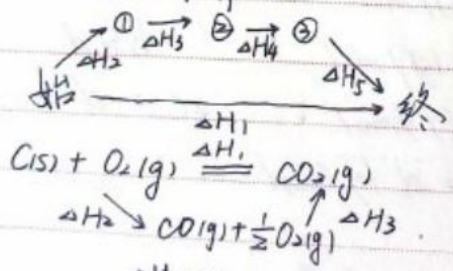 ① ΔH₃ ② ΔH₄ ③
ΔH₂ ΔH₅
始 终
ΔH₁
C(s) + O₂(g) ΔH₁ CO₂(g)
ΔH₂ CO(g) + ½O₂(g) ΔH₃